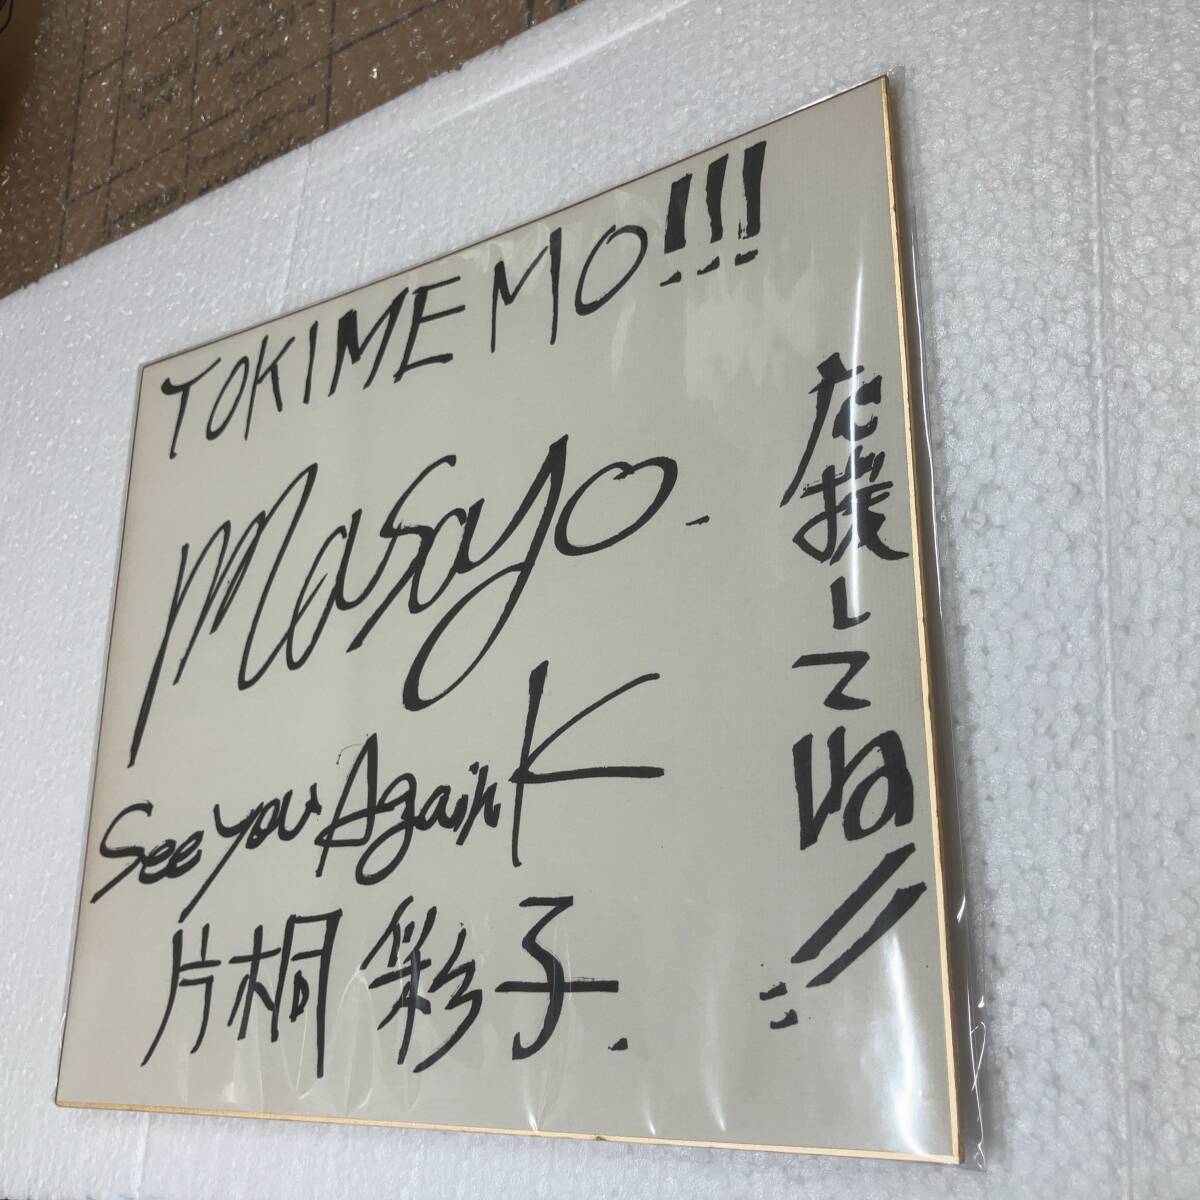 TOKIMEMO!!!
Masayo.
See you Again K
片桐 彩子.
応援してね!!